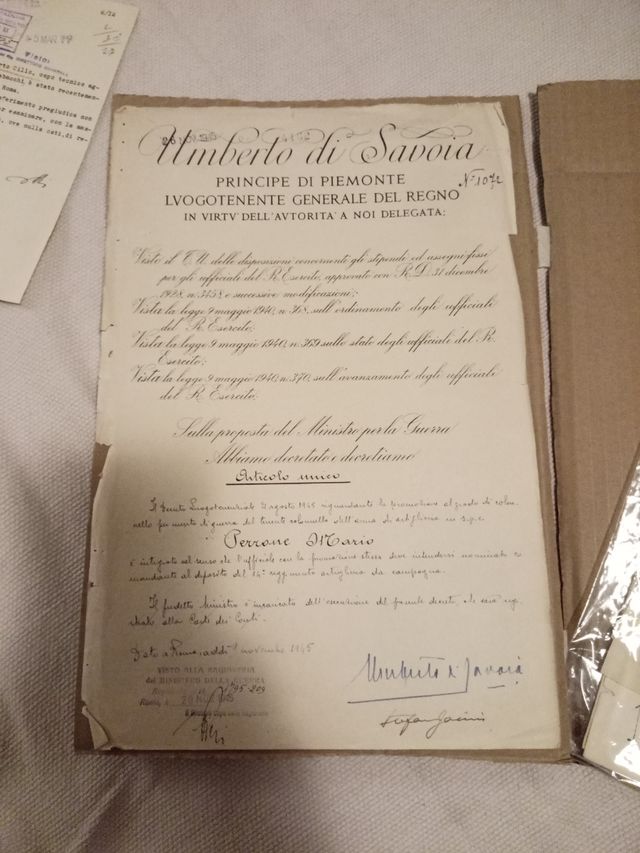 6/22
5 MAR
rto Cillo, capo tecnico ag-
abacchi è stato recentemen-
Roma.
sferimento pregiudica con
er esaminare, con la mas-
, ove nulla osti, di re-
Umberto di Savoia
PRINCIPE DI PIEMONTE
N° 1072
LVOGOTENENTE GENERALE DEL REGNO
IN VIRTV' DELL'AVTORITA' A NOI DELEGATA:
Visto il T.U. delle disposizioni concernenti gli stipendi ed assegni fissi
per gli ufficiali del R. Esercito, approvato con R.D. 31 dicembre
1928, n. 3458 e successive modificazioni;
Vista la legge 9 maggio 1940, n. 368, sull'ordinamento degli ufficiali
del R. Esercito;
Vista la legge 9 maggio 1940, n. 369 sullo stato degli ufficiali del R.
Esercito;
Vista la legge 9 maggio 1940, n. 370, sull'avanzamento degli ufficiali
del R. Esercito;
Sulla proposta del Ministro per la Guerra
Abbiamo decretato e decretiamo
Articolo unico
Il decreto Luogotenenziale 2 agosto 1945 riguardante la promozione al grado di colon-
nello per merito di guerra del tenente colonnello dell'arma di artiglieria in s.p.e.
Perrone Mario
è integrato nel senso che l'ufficiale con la promozione stessa deve intendersi nominato co
mandante al deposito del 14° reggimento artiglieria da campagna.
Il predetto Ministro è incaricato dell'esecuzione del presente decreto, che sarà regi
strato alla Corte dei Conti.
Dato a Roma addì 1 novembre 1945
VISTO ALLA RAGIONERIA
del MINISTERO DELLA GUERRA
195-209
Roma, 20 NOV 1945
Umberto di Savoia